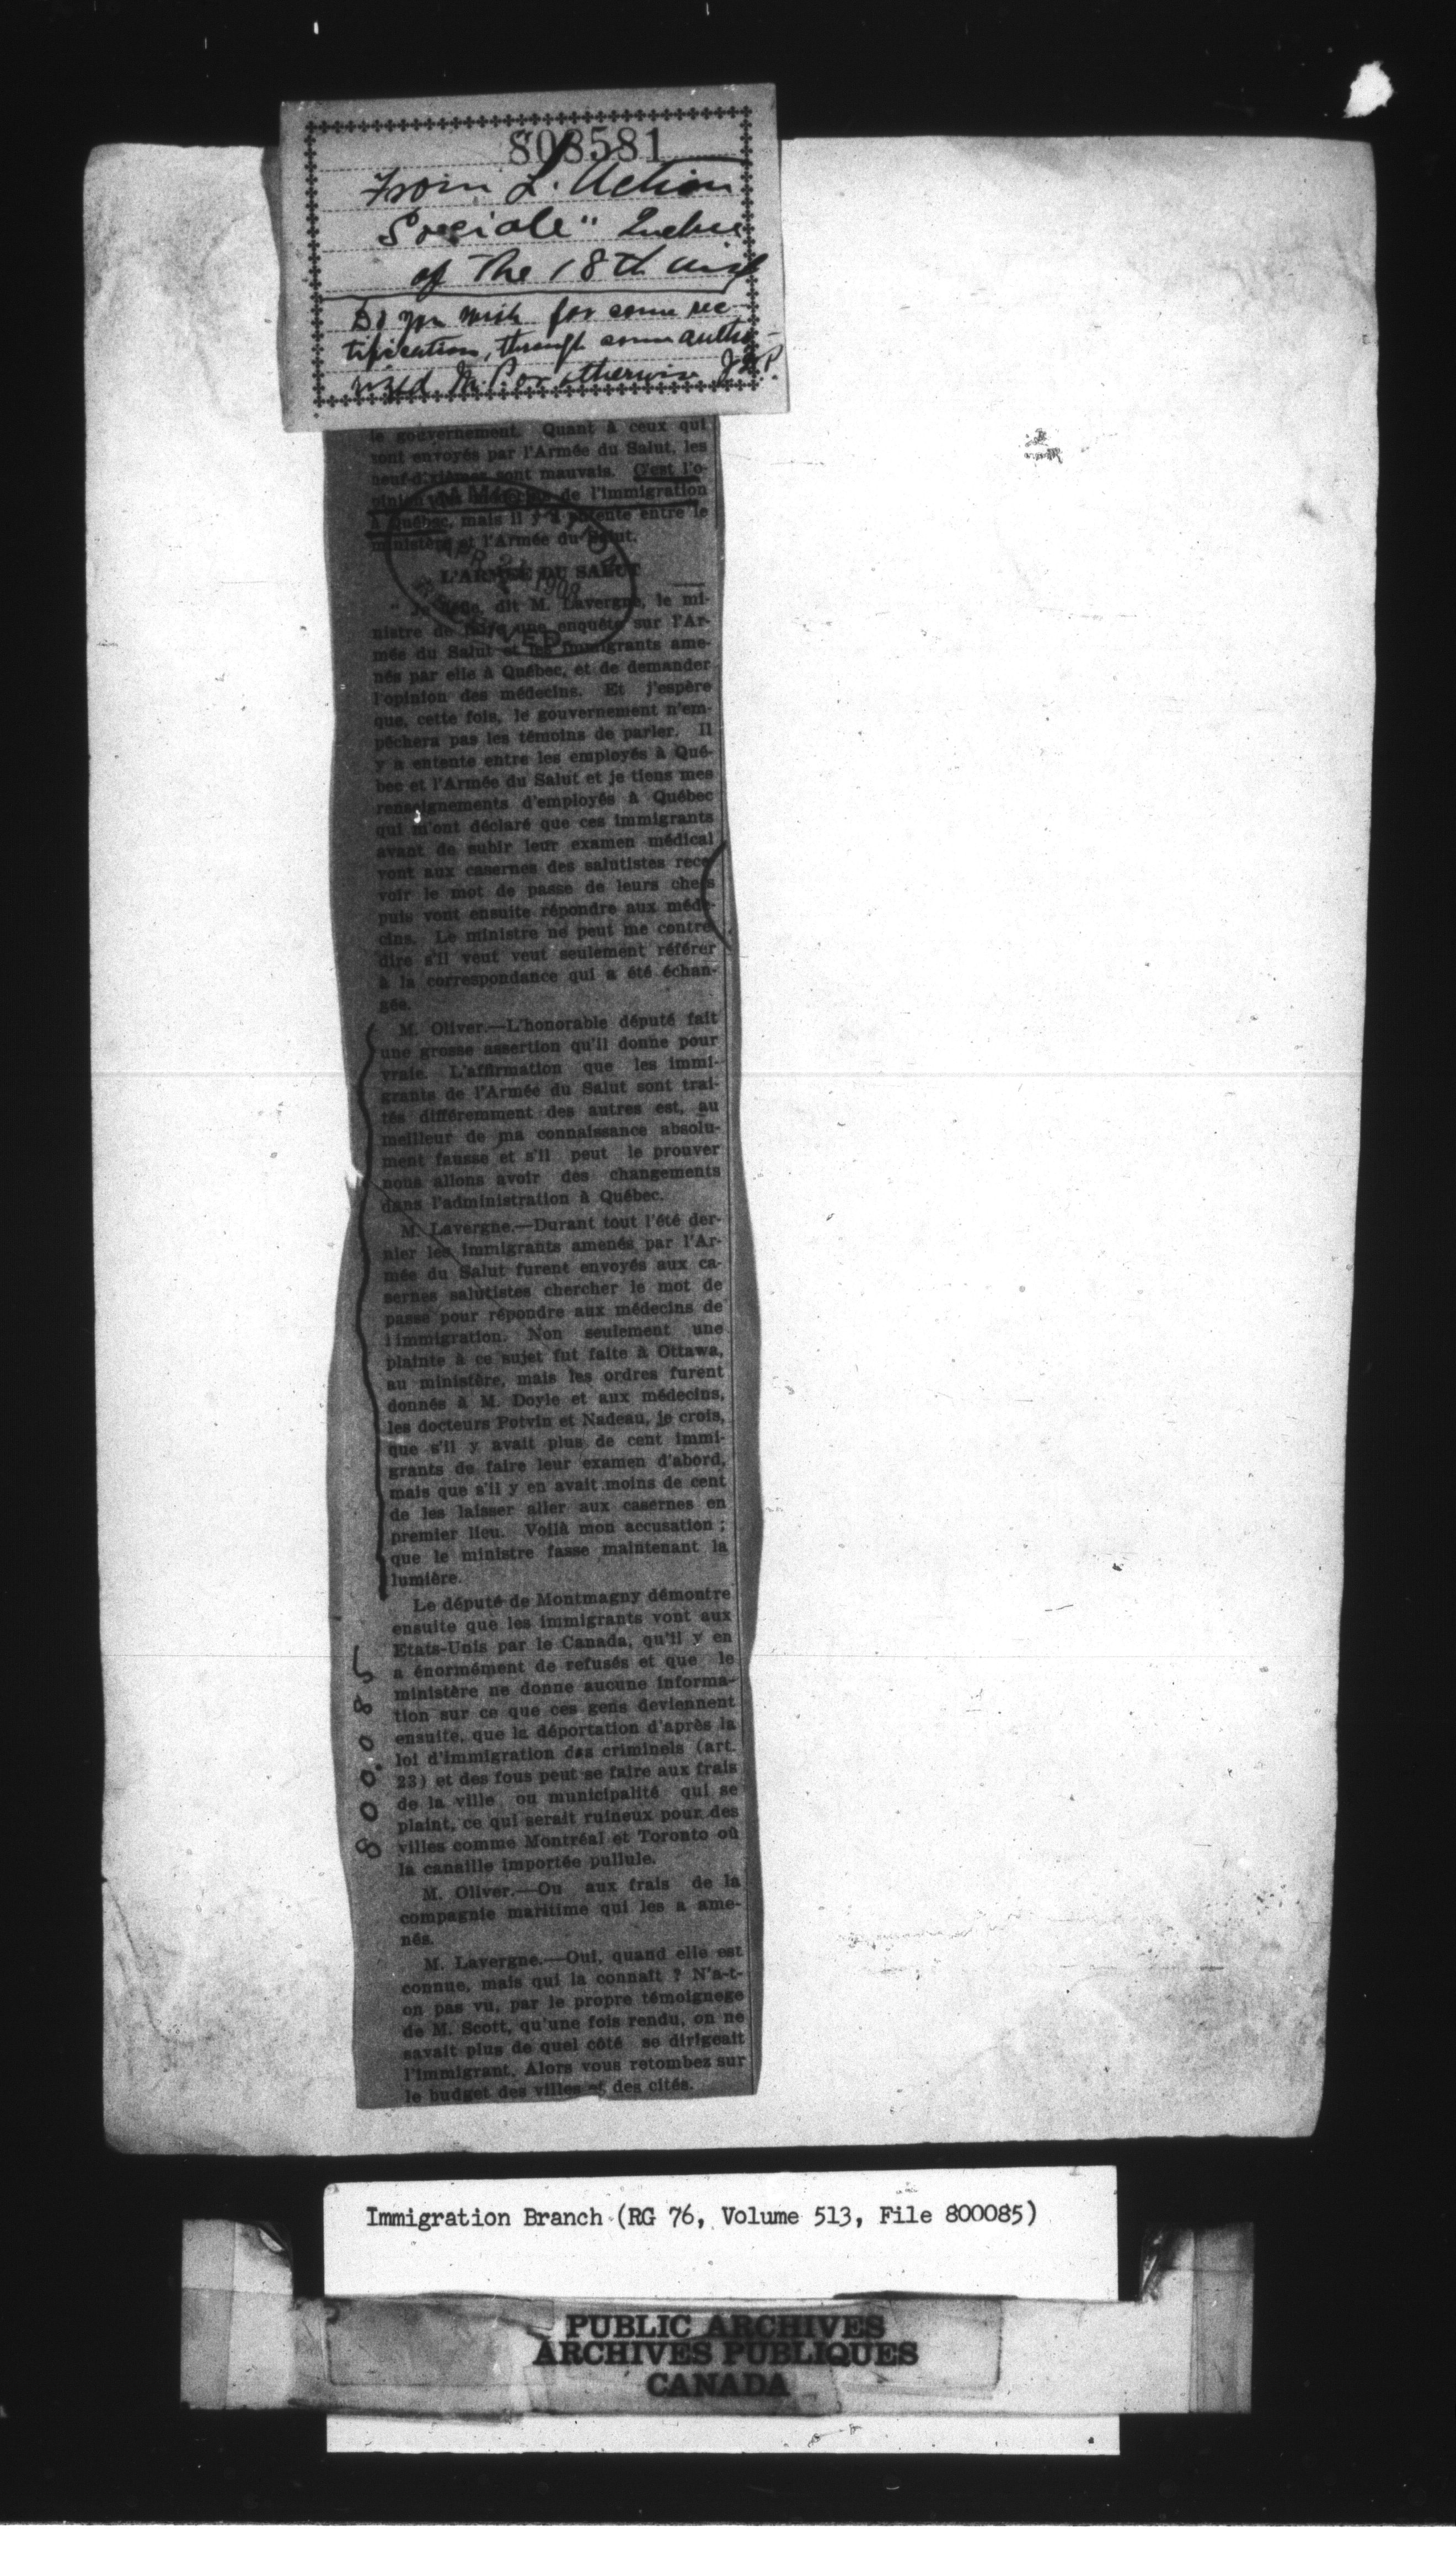 808581
From L'Action
Sociale" Quebec
of the 18th inst
Do you wish for some rec-
tification, through some autho-
rized M.P. or otherwise J.P.
le gouvernement. Quant à ceux qui
sont envoyés par l'Armée du Salut, les
neuf-dixièmes sont mauvais. C'est l'o-
pinion des médecins de l'immigration
à Québec, mais il y a entente entre le
ministère et l'Armée du Salut.
L'ARMÉE DU SALUT
" Je défie, dit M. Lavergne, le mi-
nistre de faire une enquête sur l'Ar-
mée du Salut et les immigrants ame-
nés par elle à Québec, et de demander
l'opinion des médecins. Et j'espère
que, cette fois, le gouvernement n'em-
pêchera pas les témoins de parler. Il
y a entente entre les employés à Qué-
bec et l'Armée du Salut et je tiens mes
renseignements d'employés à Québec
qui m'ont déclaré que ces immigrants
avant de subir leur examen médical
vont aux casernes des salutistes rece-
voir le mot de passe de leurs chefs
puis vont ensuite répondre aux méde-
cins. Le ministre ne peut me contre-
dire s'il veut veut seulement référer
à la correspondance qui a été échan-
gée.
M. Oliver.—L'honorable député fait
une grosse assertion qu'il donne pour
vraie. L'affirmation que les immi-
grants de l'Armée du Salut sont trai-
tés différemment des autres est, au
meilleur de ma connaissance absolu-
ment fausse et s'il peut le prouver
nous allons avoir des changements
dans l'administration à Québec.
M. Lavergne.—Durant tout l'été der-
nier les immigrants amenés par l'Ar-
mée du Salut furent envoyés aux ca-
sernes salutistes chercher le mot de
passe pour répondre aux médecins de
l'immigration. Non seulement une
plainte à ce sujet fut faite à Ottawa,
au ministère, mais les ordres furent
donnés à M. Doyle et aux médecins,
les docteurs Potvin et Nadeau, je crois,
que s'il y avait plus de cent immi-
grants de faire leur examen d'abord,
mais que s'il y en avait moins de cent
de les laisser aller aux casernes en
premier lieu. Voilà mon accusation ;
que le ministre fasse maintenant la
lumière.
Le député de Montmagny démontre
ensuite que les immigrants vont aux
Etats-Unis par le Canada, qu'il y en
a énormément de refusés et que le
ministère ne donne aucune informa-
tion sur ce que ces gens deviennent
ensuite, que la déportation d'après la
loi d'immigration des criminels (art.
23) et des fous peut se faire aux frais
de la ville ou municipalité qui se
plaint, ce qui serait ruineux pour des
villes comme Montréal et Toronto où
la canaille importée pullule.
M. Oliver.—Ou aux frais de la
compagnie maritime qui les a ame-
nés.
M. Lavergne.—Oui, quand elle est
connue, mais qui la connait ? N'a-t-
on pas vu, par le propre témoignege
de M. Scott, qu'une fois rendu, on ne
savait plus de quel côté se dirigeait
l'immigrant. Alors vous retombez sur
le budget des villes et des cités.
800085
Immigration Branch (RG 76, Volume 513, File 800085)
PUBLIC ARCHIVES
ARCHIVES PUBLIQUES
CANADA